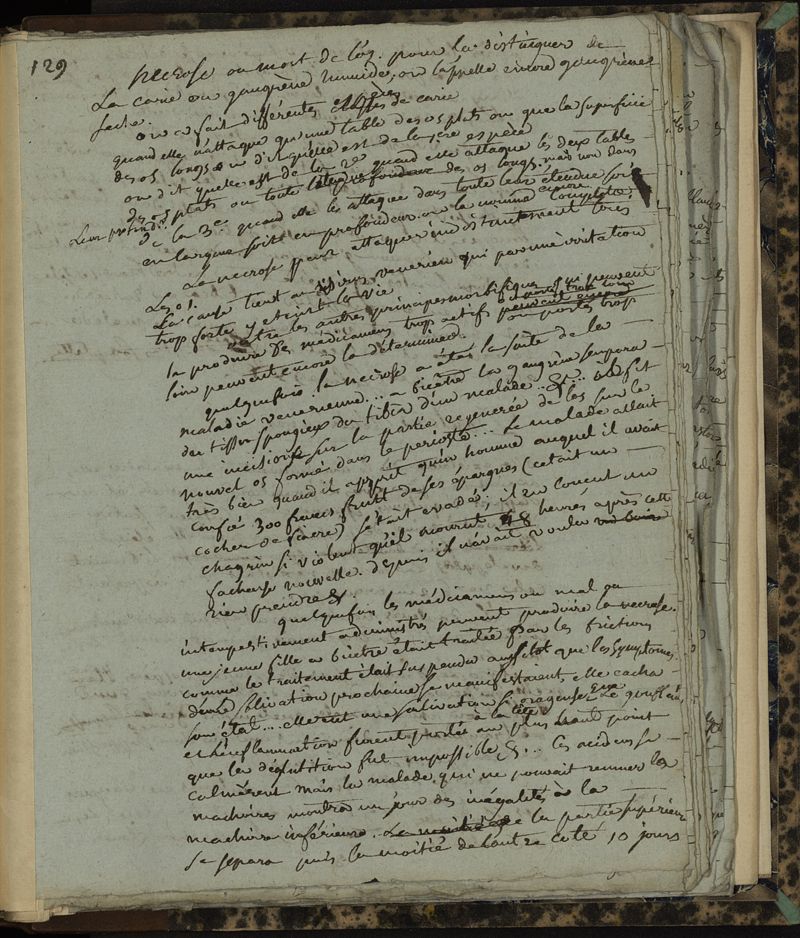 129
necrose ou mort de l'os. pour la distinguer de
La carie ou gangrène humide, on l'appelle encore gangrène
seche.
on en fait différentes especes de carie
quand elle n'attaque qu'une table des os plats ou que la superficie
des os longs on dit qu'elle est de la 1ère espèce
on dit qu'elle est de la 2e quand elle attaque les deux tables
des os plats ou toute des os longs, mais non dans
Leur profond.
3° la 3e quand elle les attaque dans toute leur étendue soit
en largeur soit en profondeur on la nomme encore complette.
La necrose peut attaquer indistinctement tous
Les os.
La cause tient au virus venerien qui par une irritation
trop forte y eteint la vie
outre les autres principes morbifiques qui peuvent
la produire des médicamens trop actifs ou portés trop
loin peuvent encore la déterminer.
quelquefois la necrose a été la suite de la
maladie venerienne... a bicêtre la gangrène sempara
du tissu spongieux du tibia d'un malade &c. on lui fit
une incision sur la partie regenerée de l'os sur le
nouvel os formé dans le perioste... Le malade allait
très bien quand il apprit qu'un homme auquel il avait
confié 300 francs fruit de ses épargnes (cétait un
cocher de fiacre) s'était evadé; il en concut un
chagrin si violent qu'il mourut 48 heures après cette
facheuse nouvelle. depuis il n'avait voulu
rien prendre &.
quelquefois les médicamens ou mal ou
intempestivement administrés peuvent produire la necrose.
une jeune fille a bicêtre était traitée par les frictions
comme le traitement était suspendu aussitot que les symptomes
d'une salivation prochaine se manifestaient elle cacha
son état... elle eut une salivation si orageuse que le gonflem.
et l'inflammation furent portés à la tête au plus haut point
que la déglutition fut impossible &... Ces accidens se
calmèrent mais la malade qui ne pouvait remuer les
machoires montra un jour des inégalités à la
machoire inférieure. La moitié de la partie supérieure
se separa puis la moitié de l'autre coté 10 jours